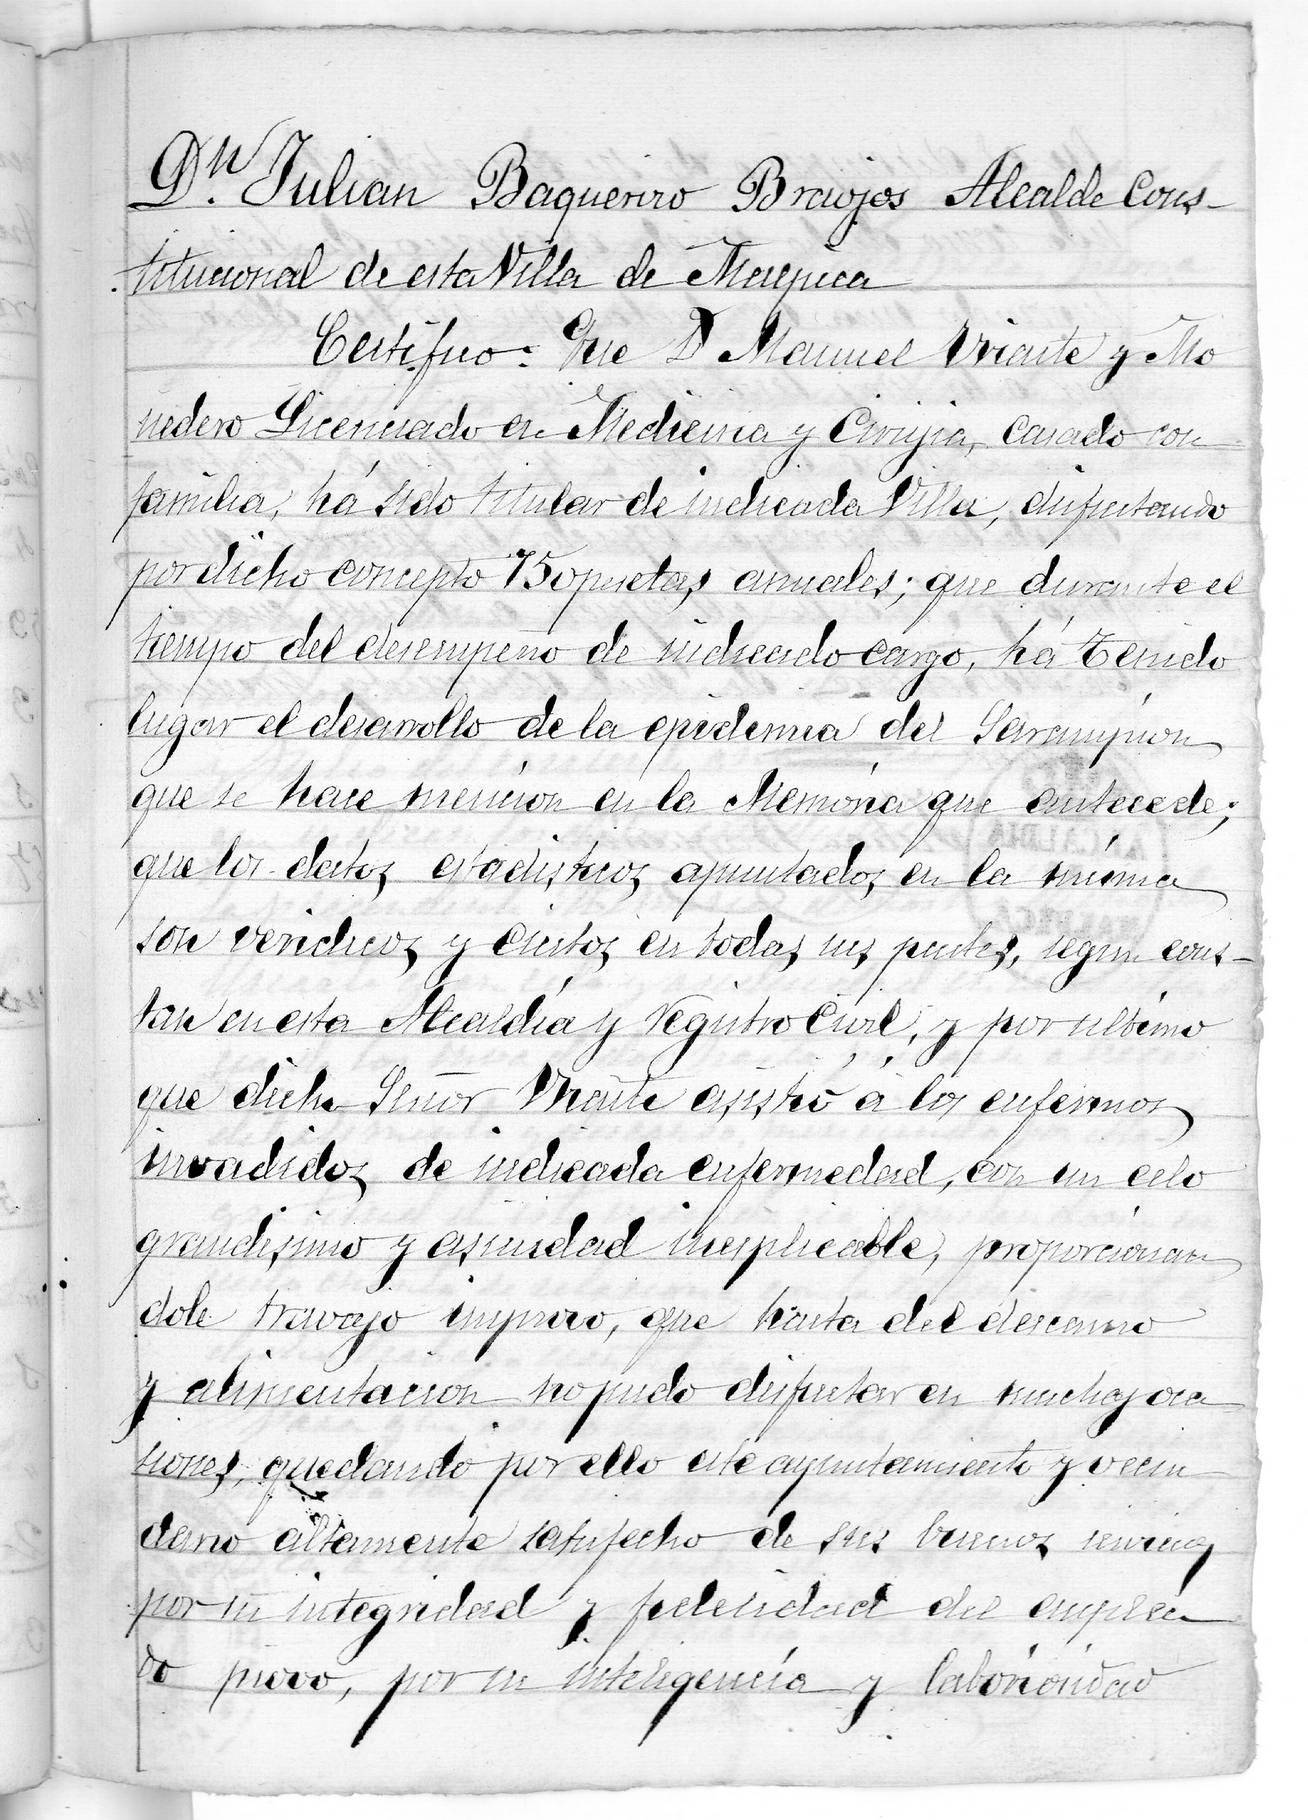 Dn. Julian Baquerizo Braojos Alcalde Cons-
titucional de esta Villa de Malpica
Certifico: Que D Manuel Uriarte y Mo
nedero Licenciado en Medicina y Cirujia, casado con
familia, há sido titular de indicada Villa, disfrutando
por dicho concepto 750 pesetas anuales; que durante el
tiempo del desempeño de indicado cargo, há tenido
lugar el desarrollo de la epidemia del Sarampion
que se hace mencion en la Memoria que antecede;
que los datos estadisticos apuntados en la misma
son veridicos y ciertos en todas sus partes, segun cons-
tan en esta Alcaldía y registro Civil, y por ultimo
que dicho Señor Uriarte asistió á los enfermos
invadidos de indicada enfermedad, con un celo
grandisimo y asiuidad inesplicable, proporcionan
dole travajo improvo, que hasta del descanso
y alimentacion no pudo disfrutar en muchas oca
siones, quedando por ello este ayuntamiento y vecin
dario altamente satisfecho de sus buenos servicios
por su integridad y fidelidad del emplea
do provo, por su inteligencia y laboriosidad